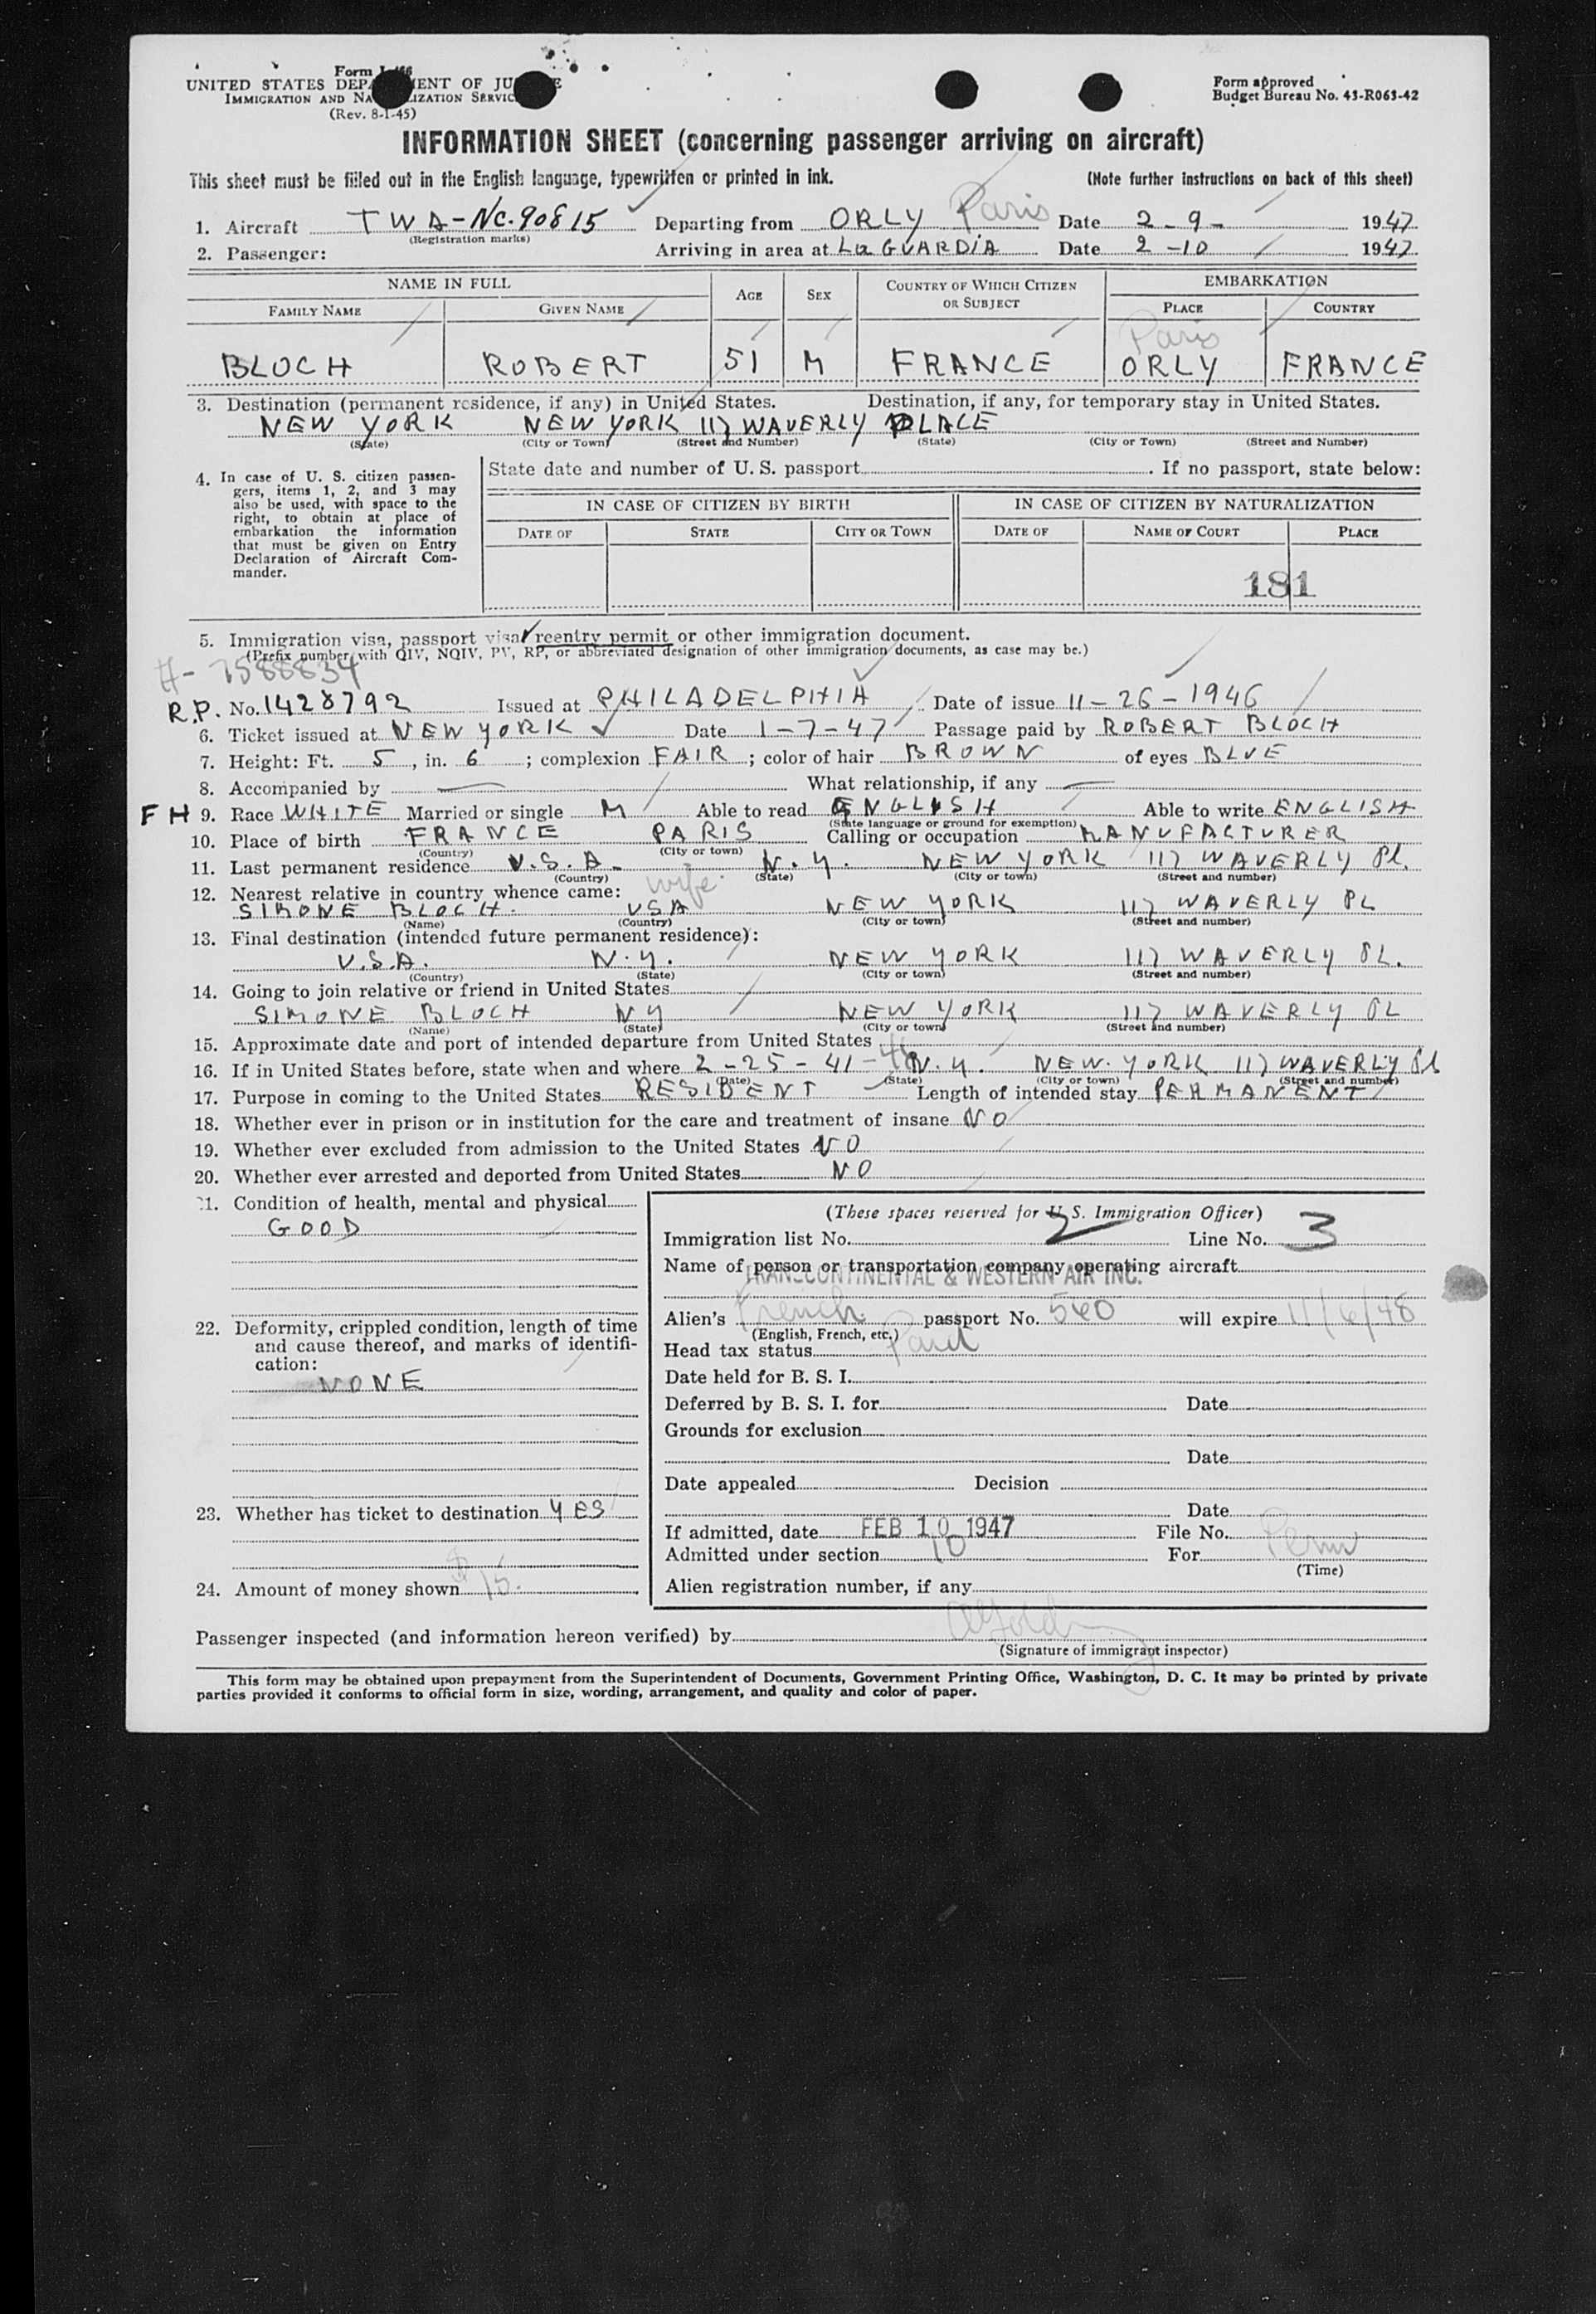 Form I-466
UNITED STATES DEPARTMENT OF JUSTICE
IMMIGRATION AND NATURALIZATION SERVICE
(Rev. 8-1-45)
Form approved
Budget Bureau No. 43-R063-42
INFORMATION SHEET (concerning passenger arriving on aircraft)
This sheet must be filled out in the English language, typewritten or printed in ink. (Note further instructions on back of this sheet)
1. Aircraft TWA-NC-90815 Departing from ORLY Paris Date 2-9- 1947
(Registration marks)
2. Passenger: Arriving in area at La GUARDIA Date 2-10 1947
NAME IN FULL AGE SEX COUNTRY OF WHICH CITIZEN OR SUBJECT EMBARKATION
FAMILY NAME GIVEN NAME PLACE COUNTRY
Paris
BLOCH ROBERT 51 M FRANCE ORLY FRANCE
3. Destination (permanent residence, if any) in United States. Destination, if any, for temporary stay in United States.
NEW YORK NEW YORK 117 WAVERLY PLACE
(State) (City or Town) (Street and Number) (State) (City or Town) (Street and Number)
4. In case of U. S. citizen passen-
gers, items 1, 2, and 3 may
also be used, with space to the
right, to obtain at place of
embarkation the information
that must be given on Entry
Declaration of Aircraft Com-
mander.
State date and number of U. S. passport. If no passport, state below:
IN CASE OF CITIZEN BY BIRTH IN CASE OF CITIZEN BY NATURALIZATION
DATE OF STATE CITY OR TOWN DATE OF NAME OF COURT PLACE
181
5. Immigration visa, passport visa, reentry permit or other immigration document.
(Prefix number with QIV, NQIV, PV, RP, or abbreviated designation of other immigration documents, as case may be.)
A- 7588834
R.P. No. 1428792 Issued at PHILADELPHIA Date of issue 11-26-1946
6. Ticket issued at NEW YORK Date 1-7-47 Passage paid by ROBERT BLOCH
7. Height: Ft. 5, in. 6; complexion FAIR; color of hair BROWN of eyes BLUE
8. Accompanied by — What relationship, if any —
FH 9. Race WHITE Married or single M Able to read ENGLISH Able to write ENGLISH
(State language or ground for exemption)
10. Place of birth FRANCE PARIS Calling or occupation MANUFACTURER
(Country) (City or town)
11. Last permanent residence U.S.A. N.Y. NEW YORK 117 WAVERLY Pl.
(Country) (State) (City or town) (Street and number)
12. Nearest relative in country whence came: wife
SIMONE BLOCH. USA NEW YORK 117 WAVERLY PL
(Name) (Country) (City or town) (Street and number)
13. Final destination (intended future permanent residence):
U.S.A. N.Y. NEW YORK 117 WAVERLY PL.
(Country) (State) (City or town) (Street and number)
14. Going to join relative or friend in United States
SIMONE BLOCH NY NEW YORK 117 WAVERLY PL
(Name) (State) (City or town) (Street and number)
15. Approximate date and port of intended departure from United States
16. If in United States before, state when and where 2-25-41-46 N.Y. NEW YORK 117 WAVERLY Pl
(Date) (State) (City or town) (Street and number)
17. Purpose in coming to the United States RESIDENT Length of intended stay PERMANENT
18. Whether ever in prison or in institution for the care and treatment of insane NO
19. Whether ever excluded from admission to the United States NO
20. Whether ever arrested and deported from United States NO
21. Condition of health, mental and physical
GOOD
22. Deformity, crippled condition, length of time
and cause thereof, and marks of identifi-
cation:
NONE
23. Whether has ticket to destination YES
24. Amount of money shown $15.
(These spaces reserved for U. S. Immigration Officer)
Immigration list No. 2 Line No. 3
Name of person or transportation company operating aircraft
TRANSCONTINENTAL & WESTERN AIR INC.
Alien's French passport No. 540 will expire 11/6/48
(English, French, etc.)
Head tax status Paid
Date held for B. S. I.
Deferred by B. S. I. for Date
Grounds for exclusion
Date
Date appealed Decision
Date
If admitted, date FEB 10 1947 File No.
Admitted under section 10 For Perm
(Time)
Alien registration number, if any
Passenger inspected (and information hereon verified) by
(Signature of immigrant inspector)
This form may be obtained upon prepayment from the Superintendent of Documents, Government Printing Office, Washington, D. C. It may be printed by private
parties provided it conforms to official form in size, wording, arrangement, and quality and color of paper.